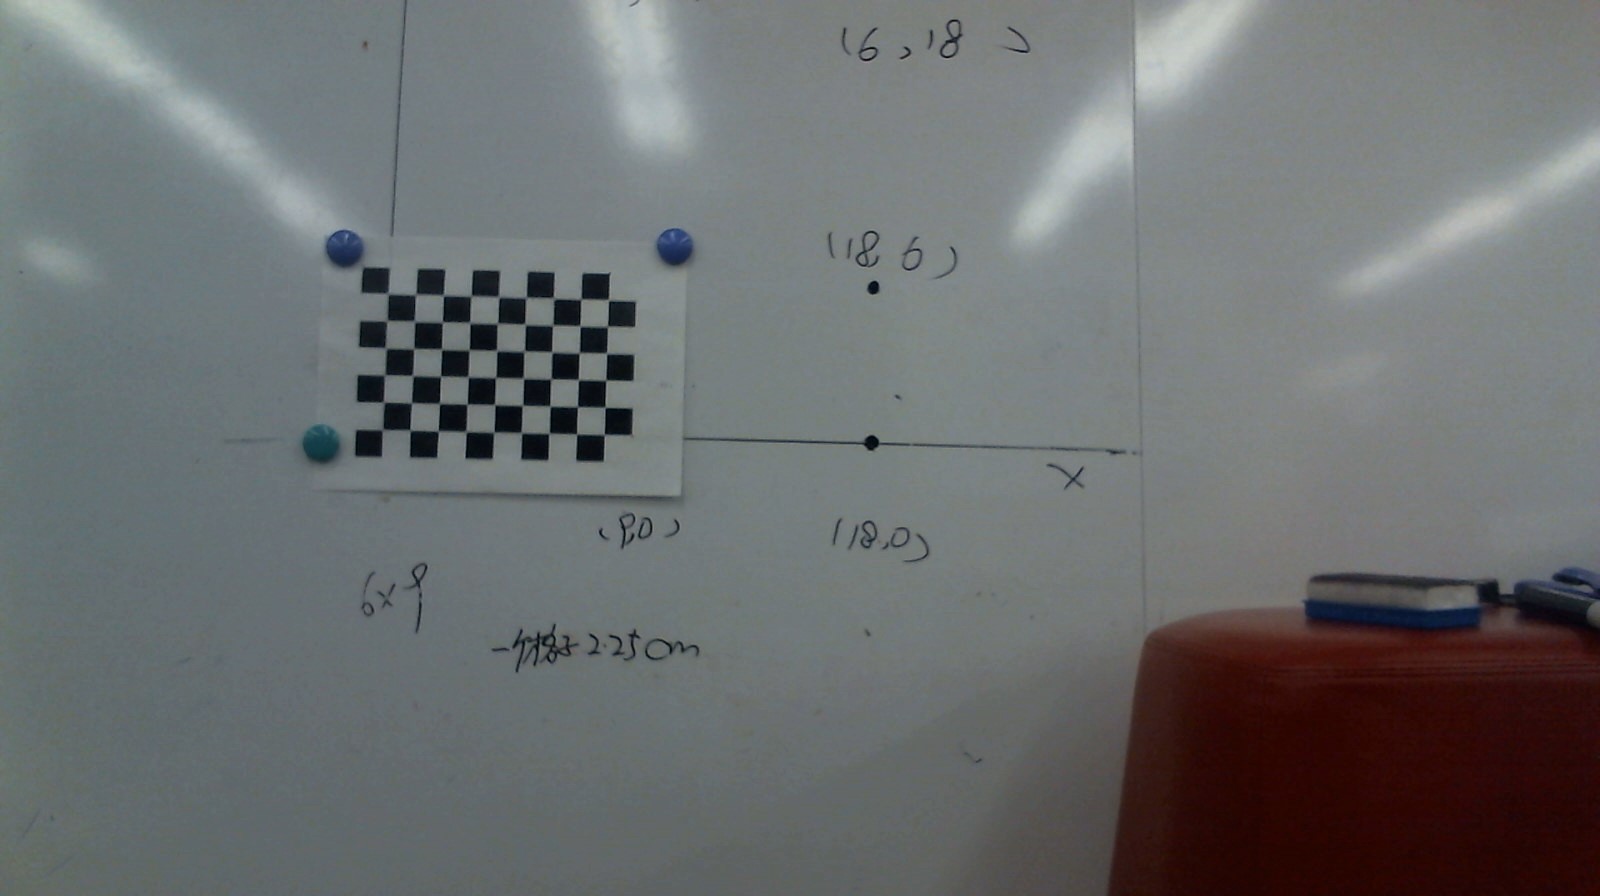 (6,18)
(18,6)
(9,0)
(18,0)
x
6×9
一个格子2.25cm